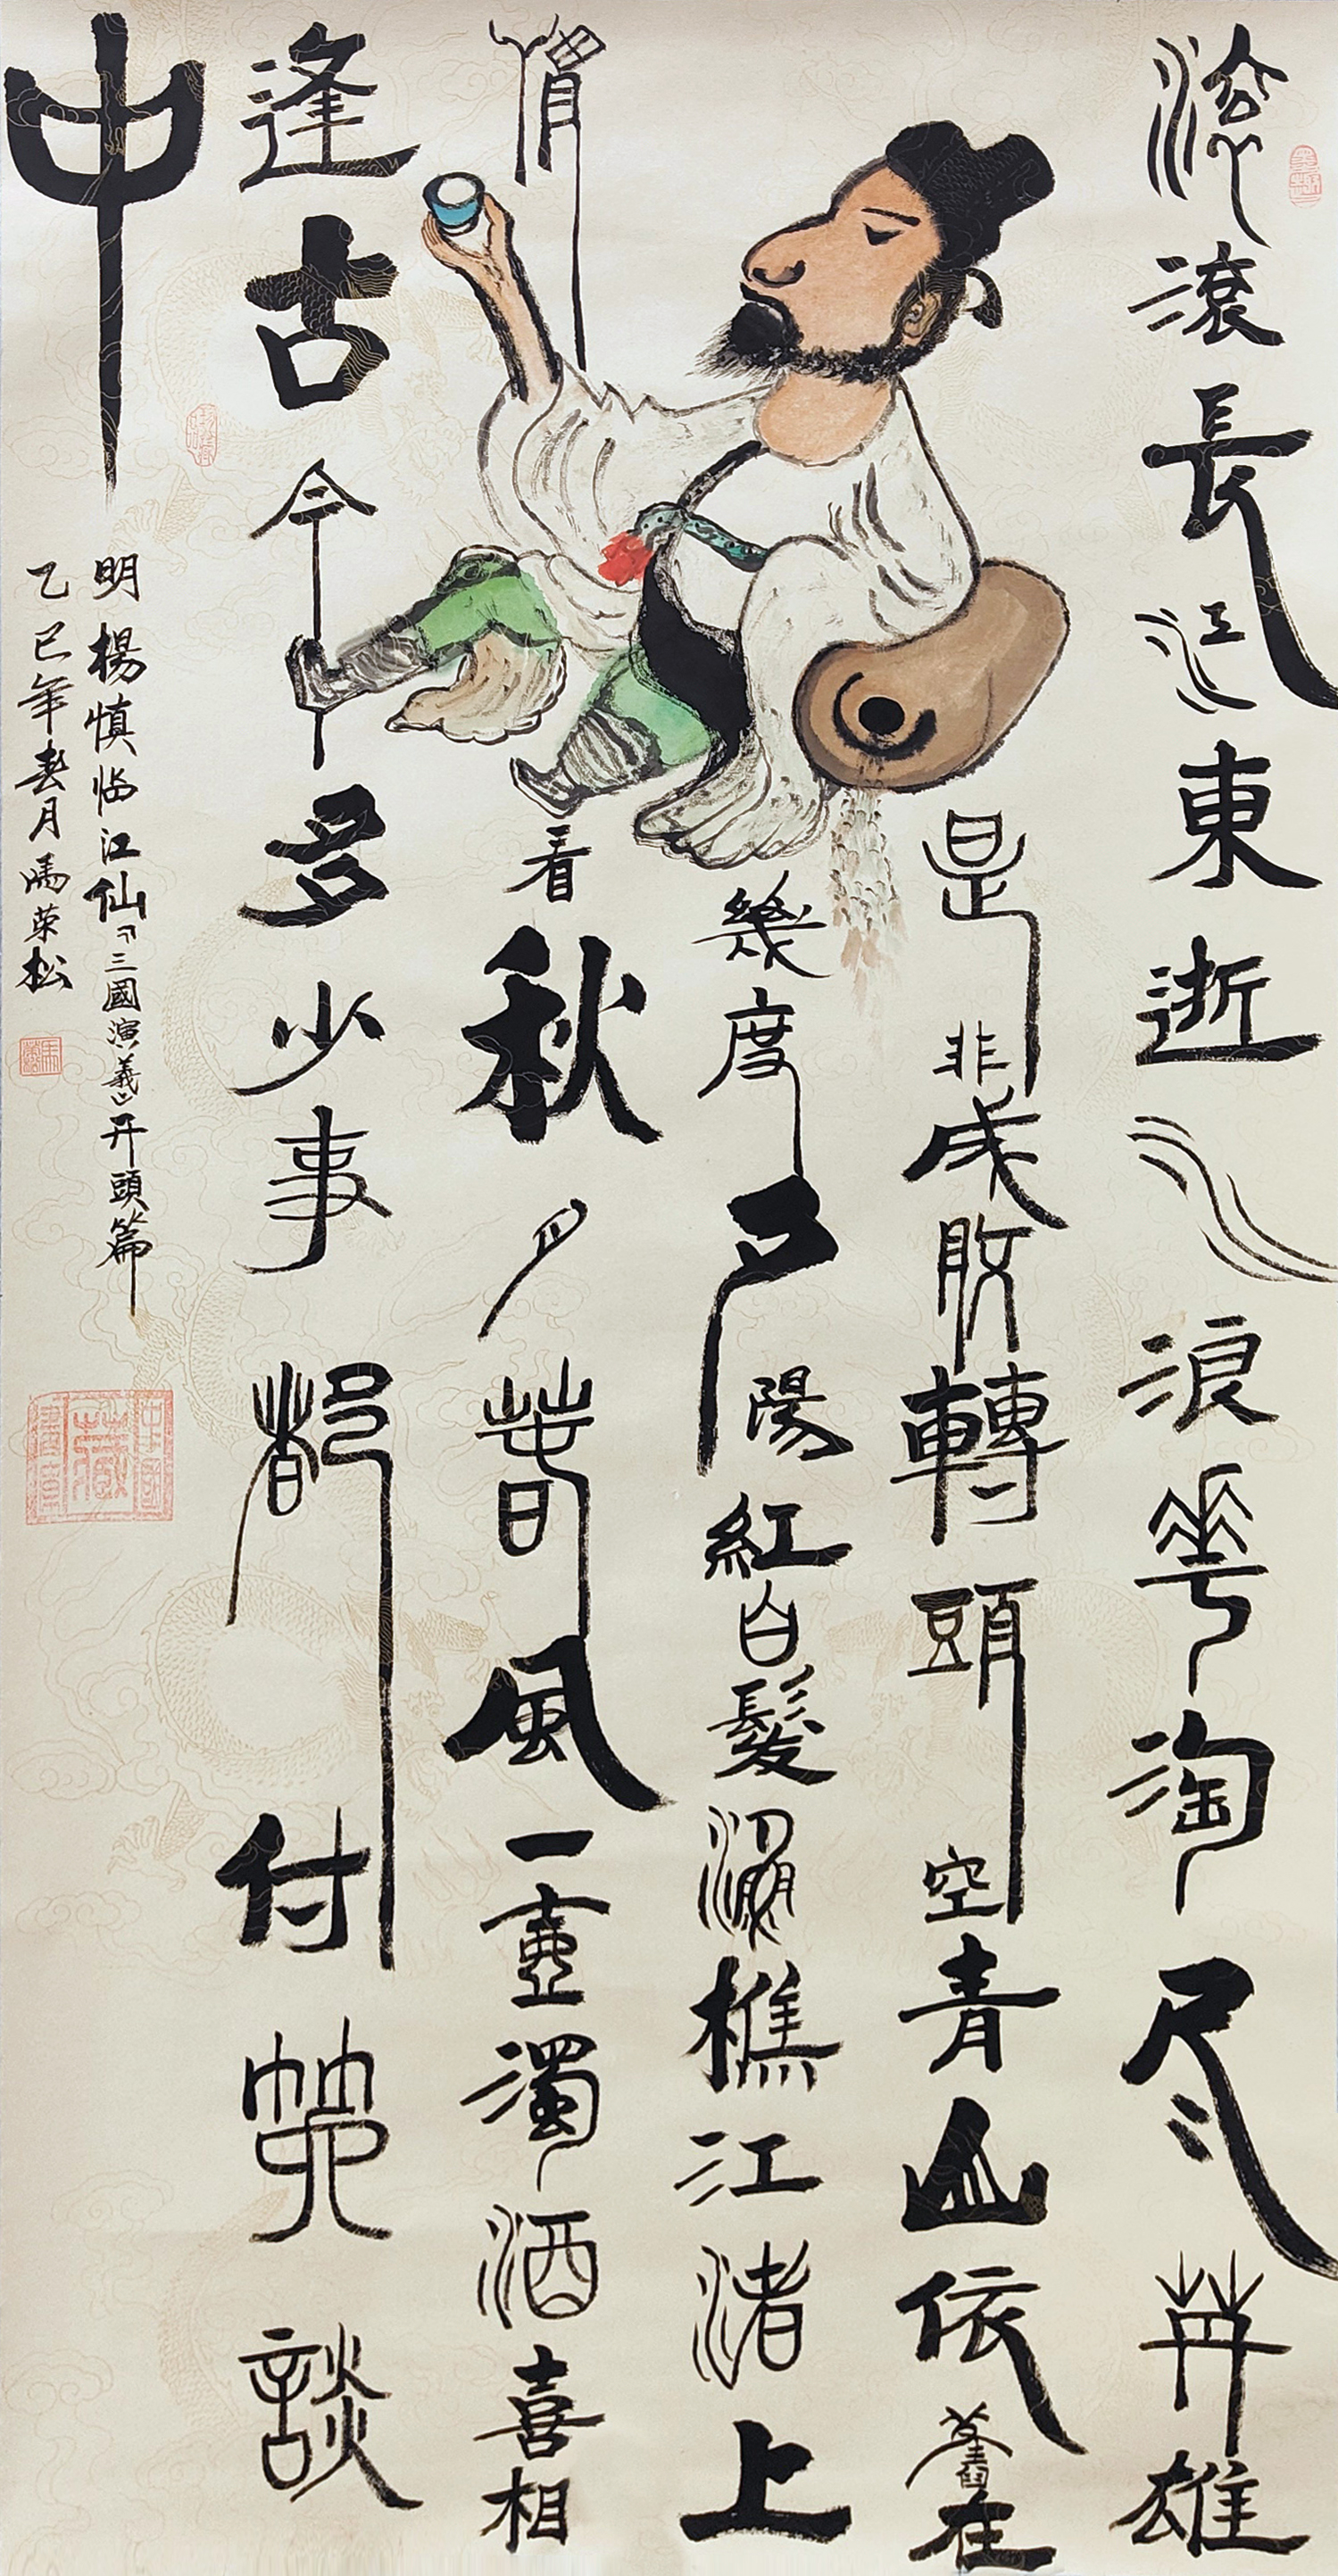 滚滾長江東逝水浪花淘尽英雄
是非成敗轉頭空青山依舊在
幾度夕陽紅白髮漁樵江渚上
慣看秋月春風一壺濁酒喜相
逢古今多少事都付笑談
中
明楊慎临江仙『三國演義』开頭篇
乙巳年春月馮荣松